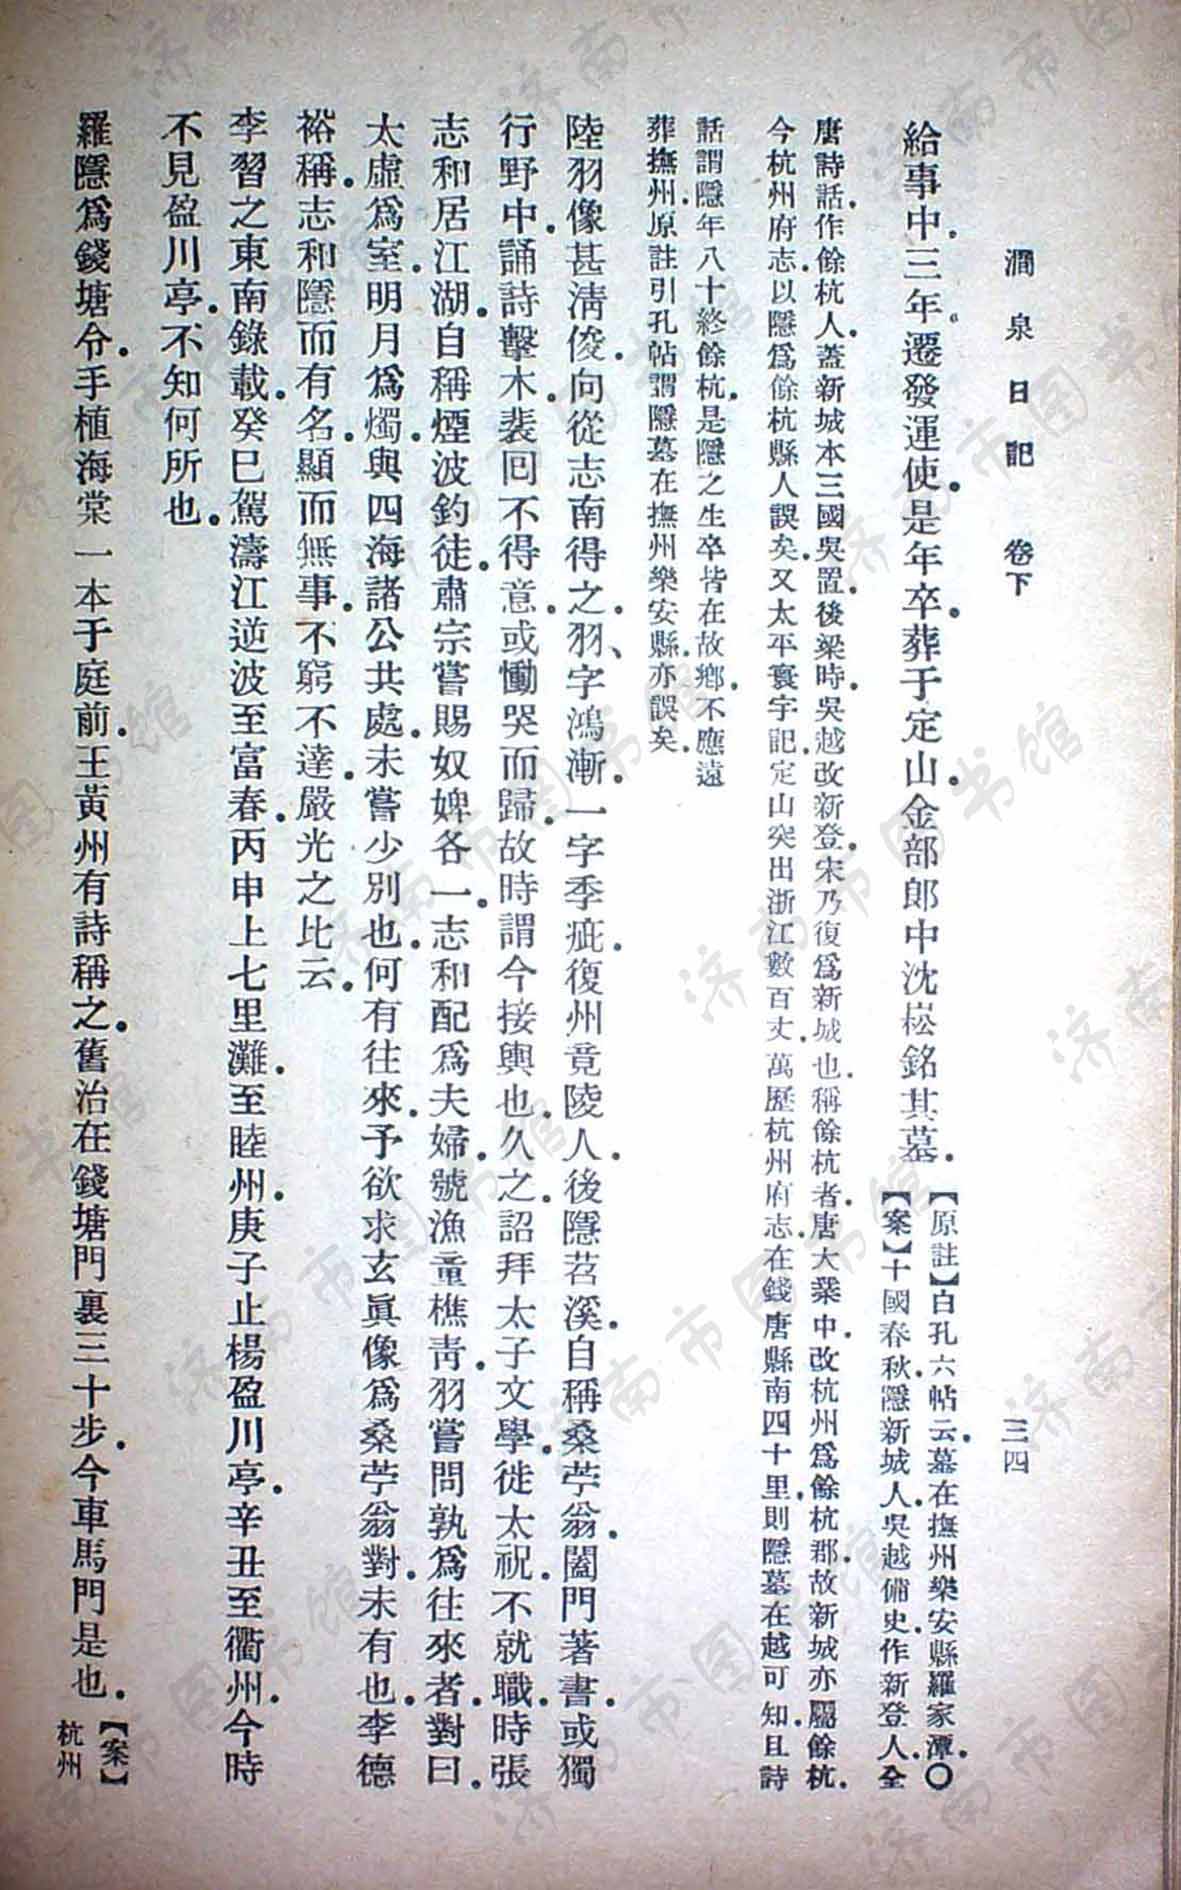 澗泉日記　卷下　三四
給事中．三年．遷發運使．是年卒．葬于定山．金部郎中沈崧銘其墓．
【原註】白孔六帖云．墓在撫州樂安縣羅家潭．○
【案】十國春秋．隱新城人．吳越備史．作新登人．全
唐詩話．作餘杭人．蓋新城本三國吳置．後梁時．吳越改新登．宋乃復爲新城也．稱餘杭者．唐大業中．改杭州爲餘杭郡．故新城亦屬餘杭．
今杭州府志．以隱爲餘杭縣人．誤矣．又太平寰宇記．定山突出浙江數百丈．萬歷杭州府志．在錢唐縣南四十里．則隱墓在越可知．且詩
話謂隱年八十終餘杭．是隱之生卒皆在故鄉．不應遠
葬撫州．原註引孔帖．謂隱墓在撫州樂安縣．亦誤矣．
陸羽像甚淸俊．向從志南得之．羽、字鴻漸．一字季疵．復州竟陵人．後隱苕溪．自稱桑苧翁．闔門著書．或獨
行野中．誦詩擊木．裴回不得意．或慟哭而歸．故時謂今接輿也．久之．詔拜太子文學．徙太祝．不就職．時張
志和居江湖．自稱煙波釣徒．肅宗嘗賜奴婢各一．志和配爲夫婦．號漁童樵靑．羽嘗問孰爲往來者．對曰．
太虛爲室．明月爲燭．與四海諸公共處．未嘗少別也．何有往來．予欲求玄眞像爲桑苧翁對．未有也．李德
裕稱．志和隱而有名．顯而無事．不窮不達．嚴光之比云．
李習之東南錄載．癸巳駕濤江逆波至富春．丙申上七里灘．至睦州．庚子止楊盈川亭．辛丑至衢州．今時
不見盈川亭．不知何所也．
羅隱爲錢塘令．手植海棠一本于庭前．王黃州有詩稱之．舊治在錢塘門裏三十步．今車馬門是也．
【案】
杭州